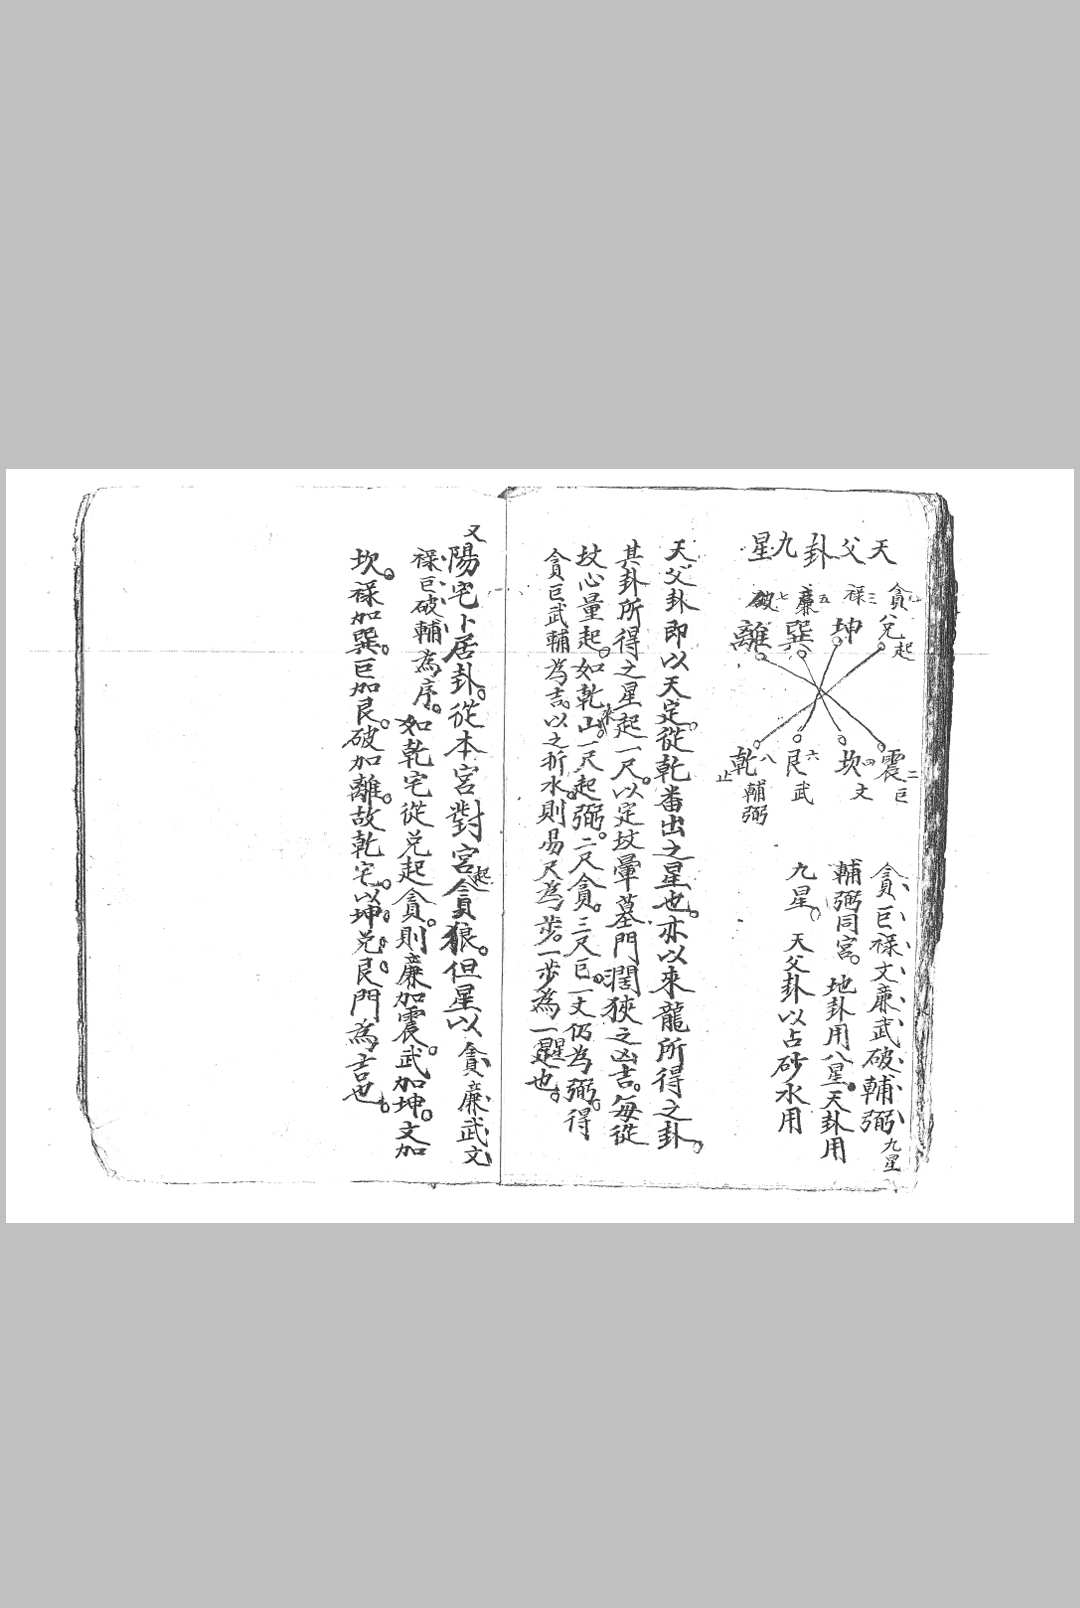 天父卦九星
貪一 禄三 廉五 破七
兌起 坤 巽 離
震二 坎四 艮六 乾八止
巨 文 武 輔弼
貪巨禄文廉武破輔弼九星
輔弼同宮地卦用八星天卦用
九星天父卦以占砂水用
天父卦即以天定從乾番出之星也亦以來龍所得之卦
其卦所得之星起一尺以定坟暈墓門濶狹之凶吉每從
坟心量起如乾山來一尺起弼二尺貪三尺巨一丈仍為弼得
貪巨武輔為吉以之折水則易尺為步一步為一星也
又陽宅卜居卦從本宮對宮起貪狼但星以貪廉武文
禄巨破輔為序如乾宅從兌起貪則廉加震武加坤文加
坎禄加巽巨加艮破加離故乾宅以坤兌艮門為吉也